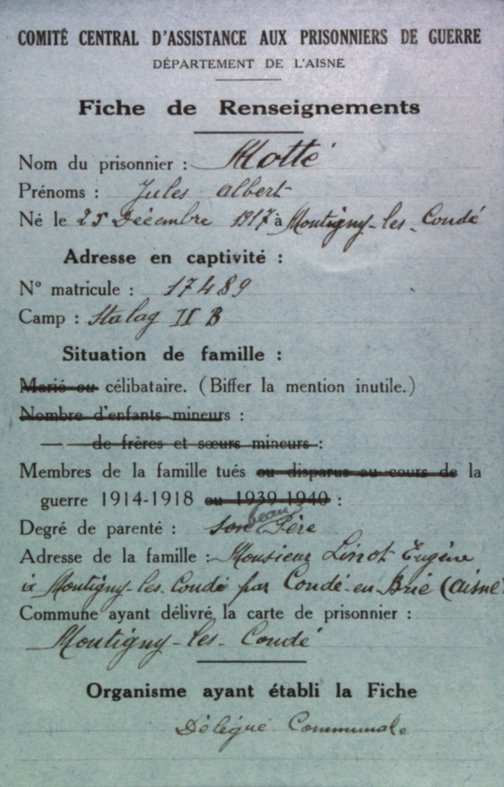 COMITÉ CENTRAL D'ASSISTANCE AUX PRISONNIERS DE GUERRE
DÉPARTEMENT DE L'AISNE
Fiche de Renseignements
Nom du prisonnier : Motté
Prénoms : Jules Albert
Né le 25 Décembre 1917 à Montigny-les-Condé
Adresse en captivité :
N° matricule : 17489
Camp : Stalag II B
Situation de famille :
Marié ou célibataire. (Biffer la mention inutile.)
Nombre d'enfants mineurs :
— de frères et sœurs mineurs :
Membres de la famille tués ou disparus au cours de la
guerre 1914-1918 ou 1939-1940 :
Degré de parenté : son beau Père
Adresse de la famille : Monsieur Linot Eugène
à Montigny-les-Condé par Condé-en-Brie (Aisne)
Commune ayant délivré la carte de prisonnier :
Montigny-les-Condé
Organisme ayant établi la Fiche
Délégué Communale